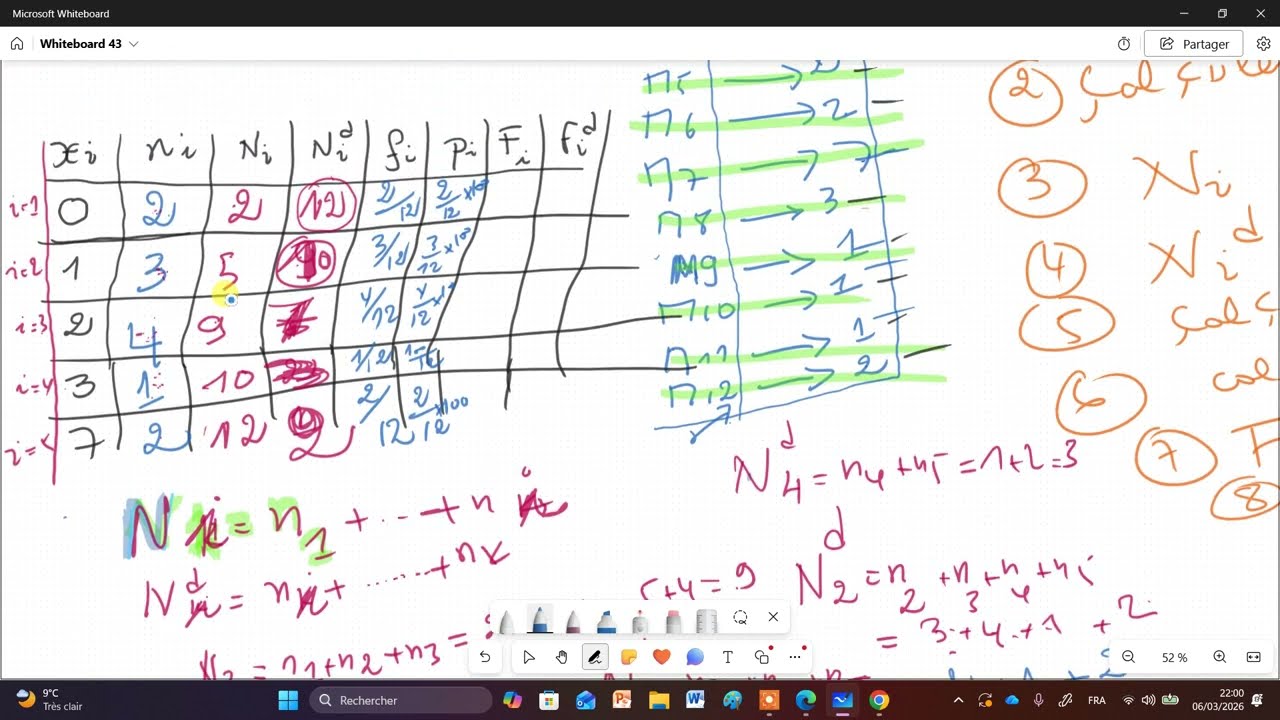 Microsoft Whiteboard
Whiteboard 43
Partager
xi ni Ni Ni^d fi pi Fi Fi^d
i=1 0 2 2 12 2/12 2/12 ×100
i=2 1 3 5 10 3/12 3/12 ×100
i=3 2 4 9 7 4/12 4/12
i=4 3 1 10 1/12
7 2 12 2 2/12 2/12 ×100
n5 → 2
n6 → 2
n7 → 7
n8 → 3
n9 → 1
n10 → 1
n11 → 1
n12 → 2
2
3 Ni
4 Ni^d
5
6
7 F
8
N4^d = n4 + n5 = 1+2 = 3
= n1 + ... + n
N^d = n + ...... + nk
5+4 = 9
N2^d = n2 + n3 + n4 + n5
= 3 + 4 + 1 + 2
= n1 + n2 + n3 =
52 %
9°C
Très clair
Rechercher
FRA
22:00
06/03/2026